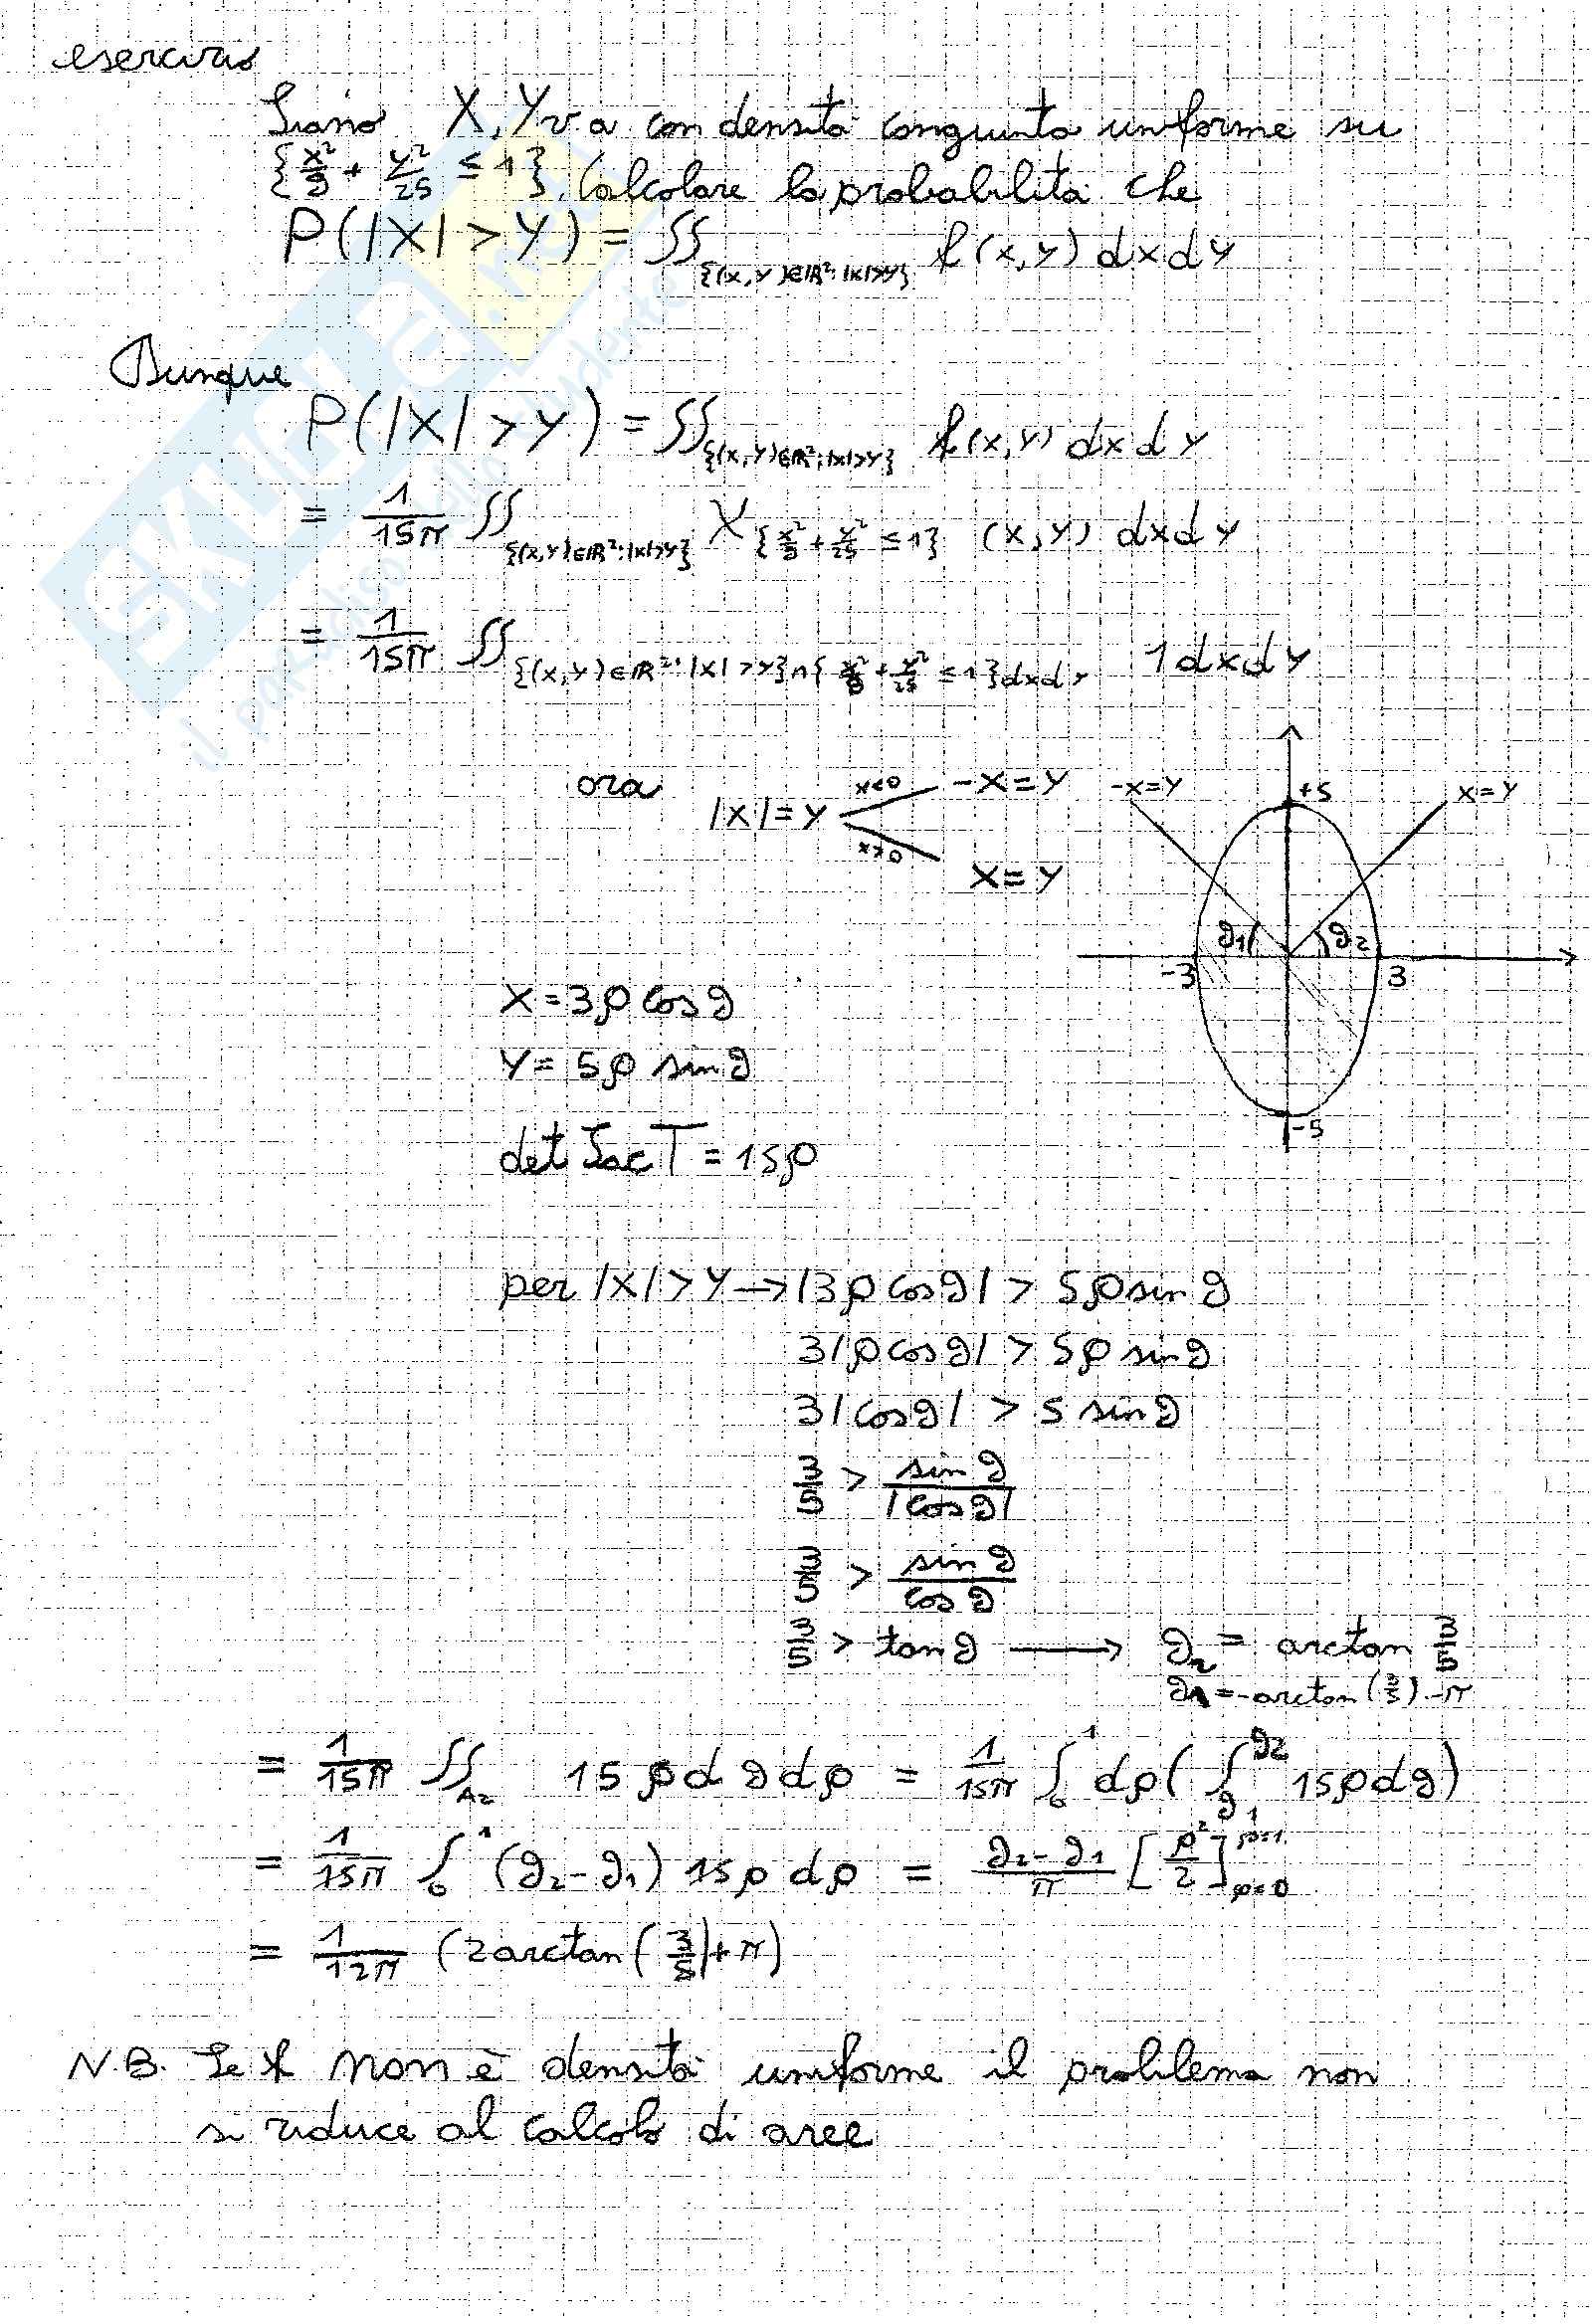 esercizio
Siano X, Y va con densità congiunta uniforme su
{x²/9 + y²/25 ≤ 1}. Calcolare la probabilità che
P(|X| > Y) = ∫∫_{(x,y)∈ℝ²: |x|>y} f(x,y) dxdy
Dunque
P(|X| > Y) = ∫∫_{(x,y)∈ℝ²: |x|>y} f(x,y) dxdy
= 1/15π ∫∫_{(x,y)∈ℝ²: |x|>y} χ_{x²/9 + y²/25 ≤ 1} (x,y) dxdy
= 1/15π ∫∫_{(x,y)∈ℝ²: |x|>y}∩{x²/9 + y²/25 ≤ 1}dxdy 1 dxdy
ora |x| = y
x<0 -x = y
x>0 x = y
-x=y +5 x=y
ϑ1 ϑ2
-3 3
-5
x = 3ρ cos ϑ
y = 5ρ sin ϑ
det Jac T = 15ρ
per |x| > y → |3ρ cos ϑ| > 5ρ sin ϑ
3|ρ cos ϑ| > 5ρ sin ϑ
3|cos ϑ| > 5 sin ϑ
3/5 > sin ϑ/|cos ϑ|
3/5 > sin ϑ/cos ϑ
3/5 > tan ϑ → ϑ2 = arctan 3/5
ϑ1 = -arctan(3/5) - π
= 1/15π ∫∫_A2 15 ρ dϑ dρ = 1/15π ∫_0^1 dρ ( ∫_ϑ1^ϑ2 15ρ dϑ)
= 1/15π ∫_0^1 (ϑ2 - ϑ1) 15ρ dρ = ϑ2 - ϑ1/π [ρ²/2]_ρ=0^ρ=1
= 1/12π (2 arctan(3/5) + π)
N.B. Se f non è densità uniforme il problema non
si riduce al calcolo di aree
SKUOLA.net
il paradiso dello studente